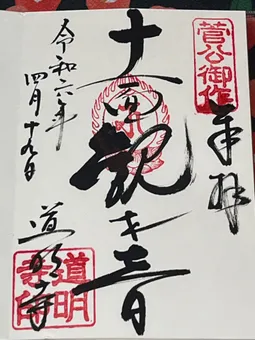 菅公御作
奉拝
十一面観世音
道明寺
道明寺印
令和六年
四月